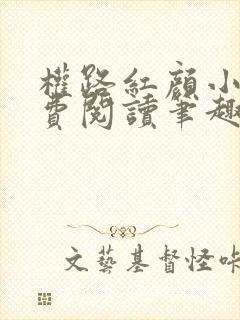 權路紅顏小
費閱讀筆趣
文藝基督怪咔